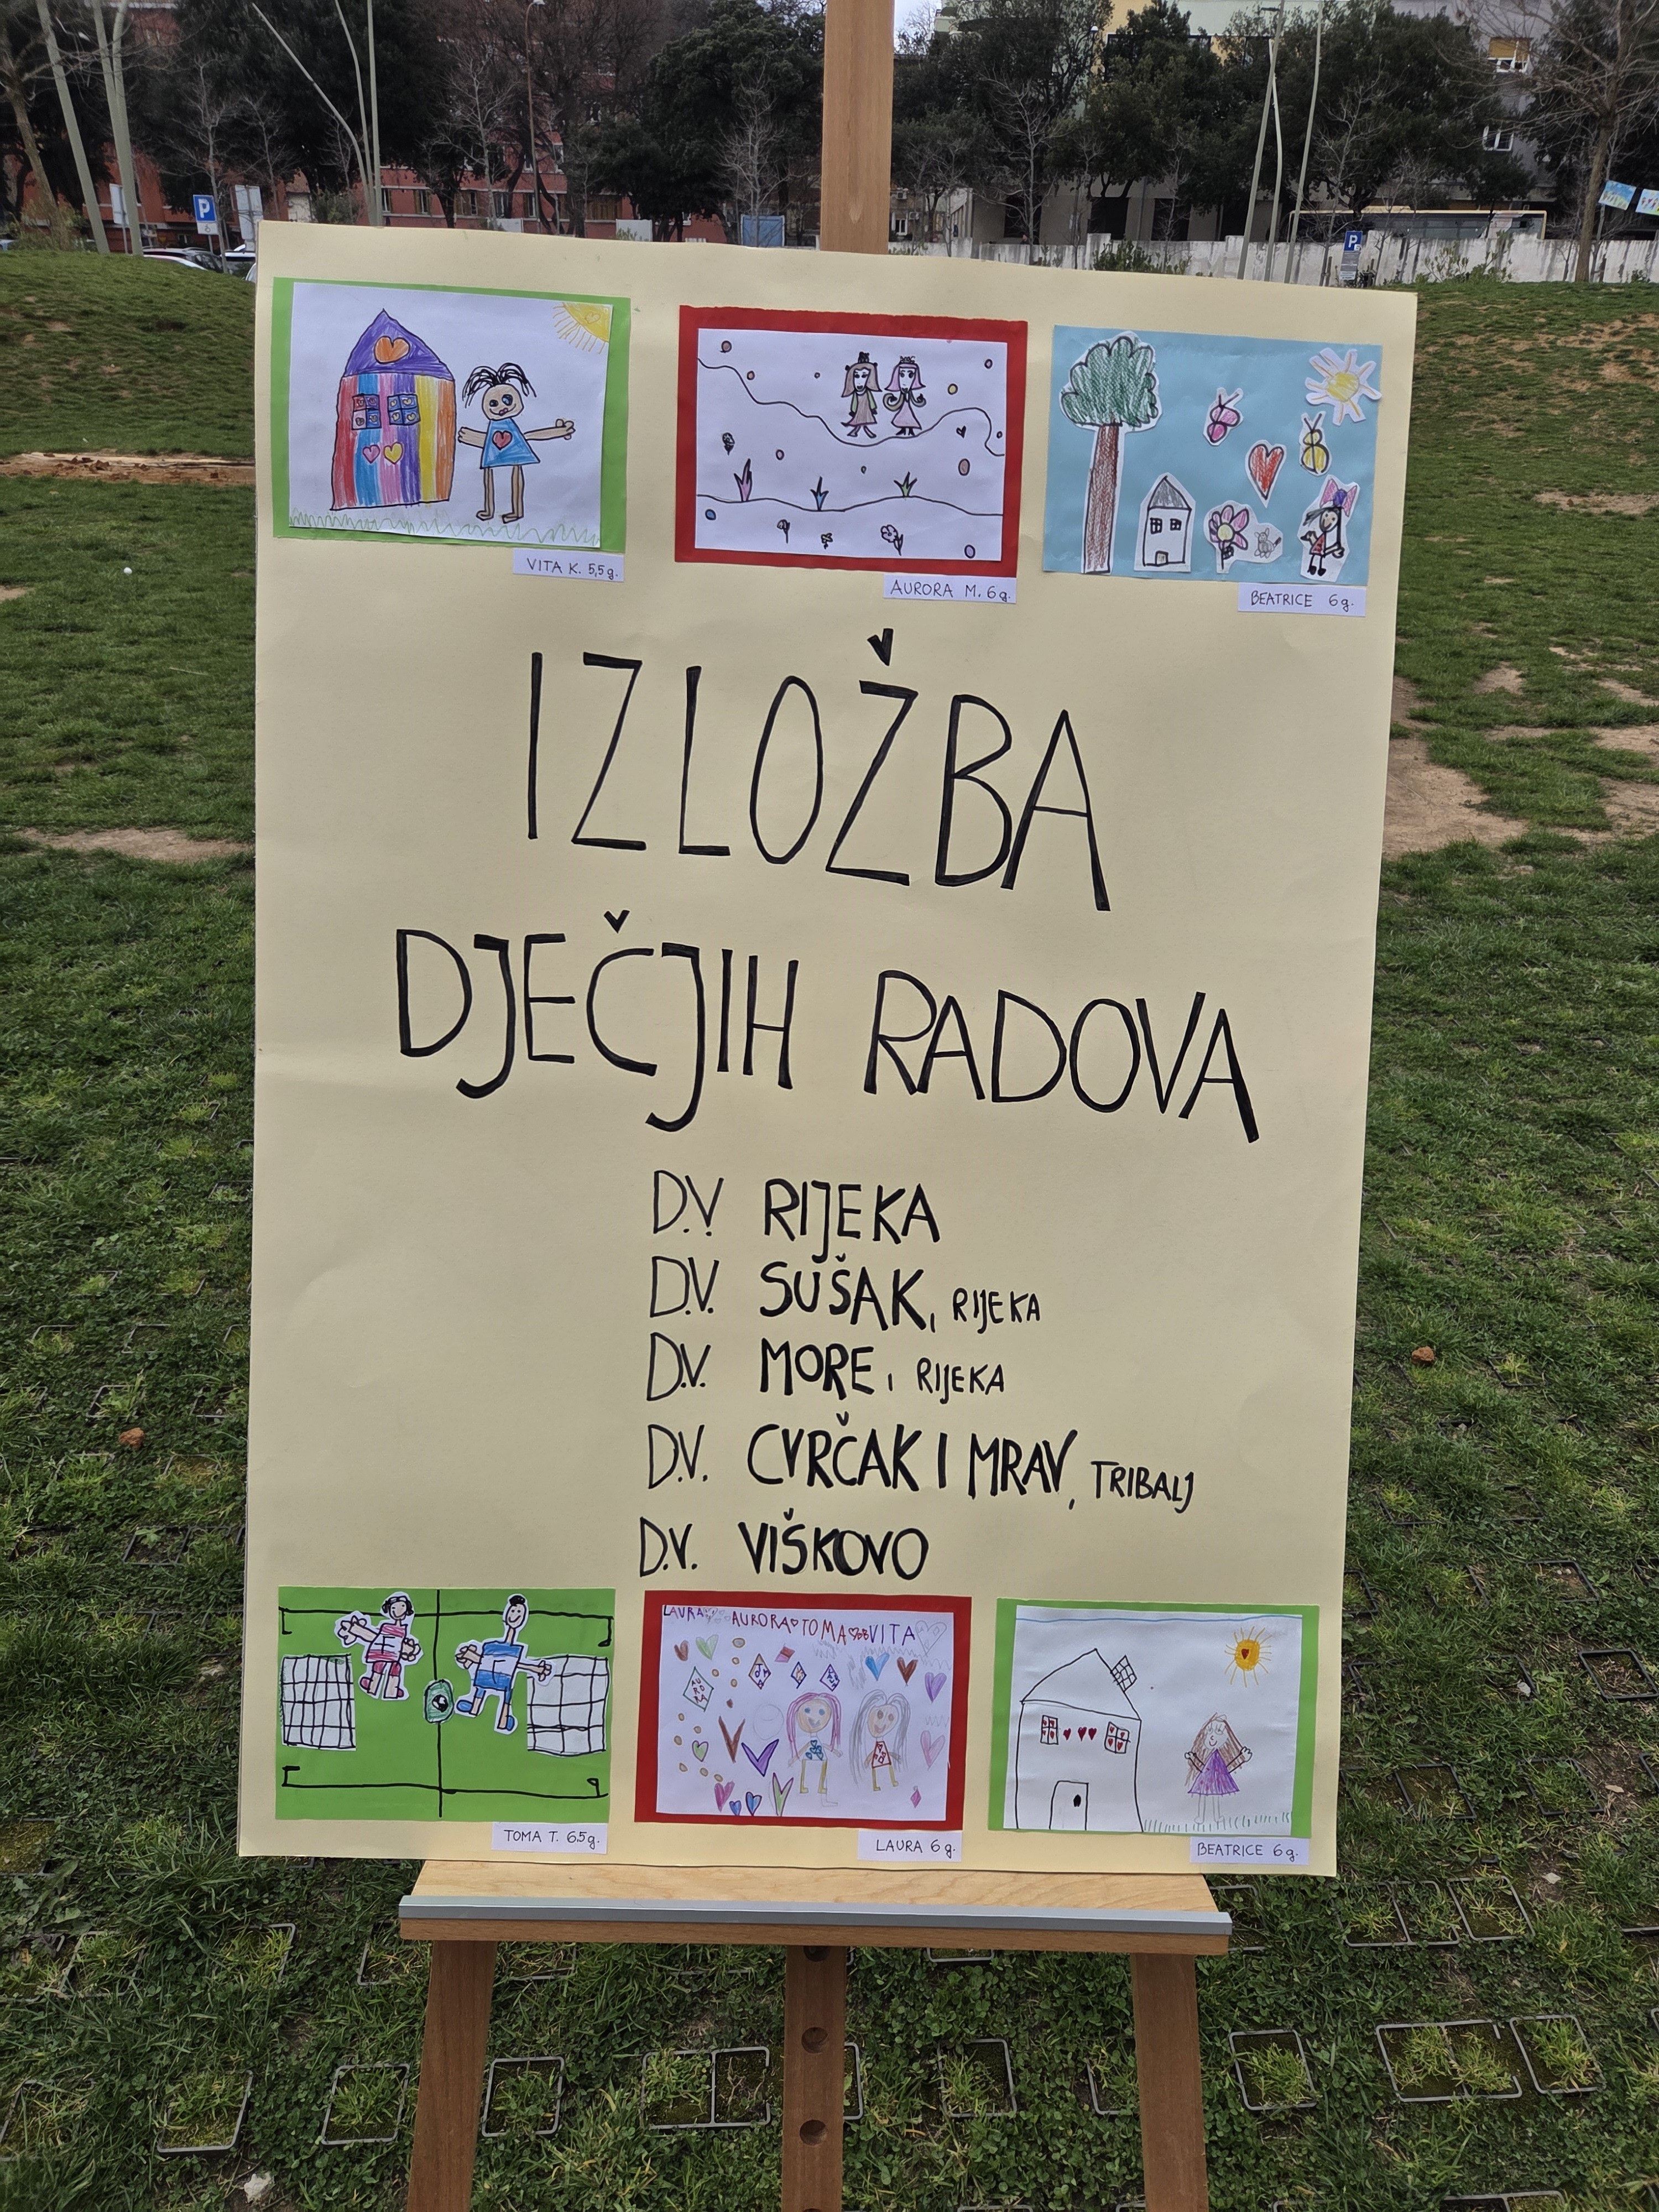 P
P
VITA K. 5,5g.
AURORA M. 6g.
BEATRICE 6g.
IZLOŽBA
DJEČJIH RADOVA
D.V. RIJEKA
D.V. SUŠAK, RIJEKA
D.V. MORE, RIJEKA
D.V. CVRČAK I MRAV, TRIBALJ
D.V. VIŠKOVO
LAURA AURORA TOMA VITA
AURORA
TOMA T. 6,5g.
LAURA 6g.
BEATRICE 6g.